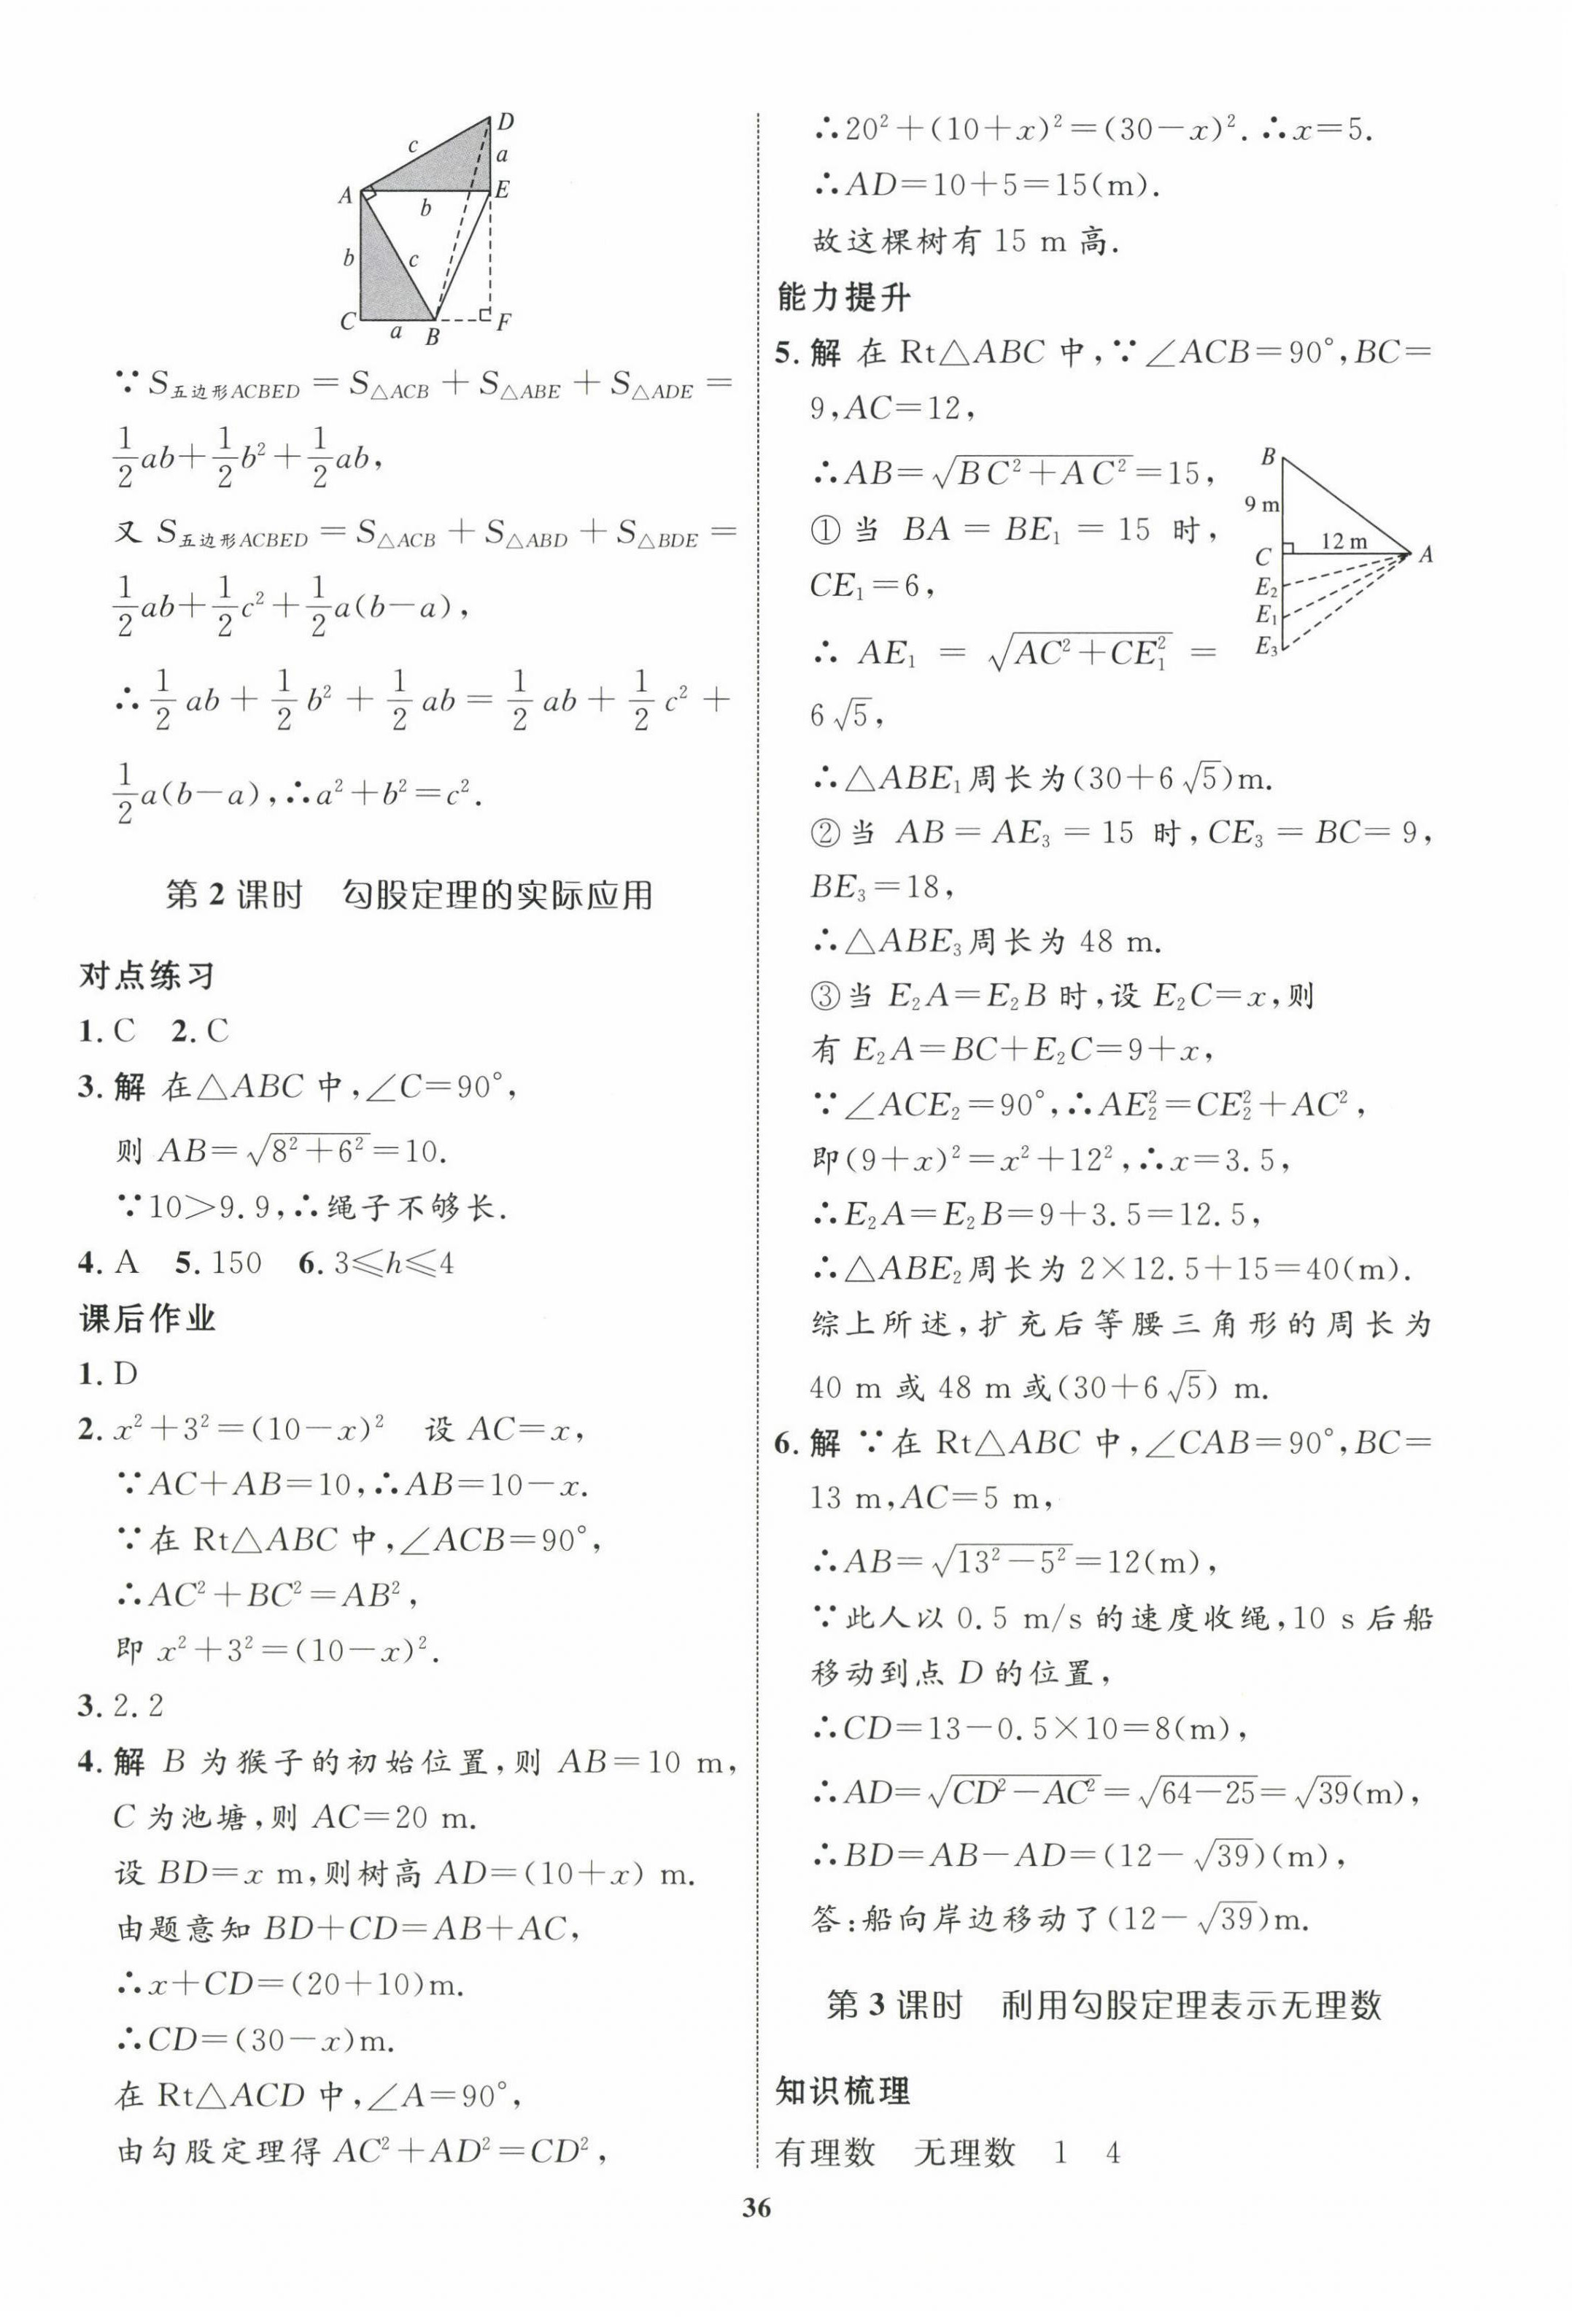 D
c
a
A
E
b
b
c
C
a
B
F
∵S五边形ACBED=S△ACB+S△ABE+S△ADE=
1/2ab+1/2b²+1/2ab,
又 S五边形ACBED=S△ACB+S△ABD+S△BDE=
1/2ab+1/2c²+1/2a(b-a),
∴1/2ab+1/2b²+1/2ab=1/2ab+1/2c²+
1/2a(b-a),∴a²+b²=c².
第2课时 勾股定理的实际应用
对点练习
1.C 2.C
3.解 在△ABC中,∠C=90°,
则 AB=√(8²+6²)=10.
∵10>9.9,∴绳子不够长.
4.A 5.150 6.3≤h≤4
课后作业
1.D
2.x²+3²=(10-x)² 设 AC=x,
∵AC+AB=10,∴AB=10-x.
∵在 Rt△ABC 中,∠ACB=90°,
∴AC²+BC²=AB²,
即 x²+3²=(10-x)².
3.2.2
4.解 B 为猴子的初始位置,则 AB=10 m,
C 为池塘,则 AC=20 m.
设 BD=x m,则树高 AD=(10+x) m.
由题意知 BD+CD=AB+AC,
∴x+CD=(20+10)m.
∴CD=(30-x)m.
在 Rt△ACD 中,∠A=90°,
由勾股定理得 AC²+AD²=CD²,
∴20²+(10+x)²=(30-x)².∴x=5.
∴AD=10+5=15(m).
故这棵树有 15 m 高.
能力提升
5.解 在 Rt△ABC 中,∵∠ACB=90°,BC=
9,AC=12,
∴AB=√(BC²+AC²)=15,
①当 BA=BE₁=15 时,
CE₁=6,
∴AE₁=√(AC²+CE₁²)=
6√5,
B
9 m
C
12 m
A
E₂
E₁
E₃
∴△ABE₁周长为(30+6√5)m.
②当 AB=AE₃=15 时,CE₃=BC=9,
BE₃=18,
∴△ABE₃周长为 48 m.
③当 E₂A=E₂B 时,设 E₂C=x,则
有 E₂A=BC+E₂C=9+x,
∵∠ACE₂=90°,∴AE₂²=CE₂²+AC²,
即(9+x)²=x²+12²,∴x=3.5,
∴E₂A=E₂B=9+3.5=12.5,
∴△ABE₂周长为 2×12.5+15=40(m).
综上所述,扩充后等腰三角形的周长为
40 m 或 48 m 或(30+6√5) m.
6.解 ∵在 Rt△ABC 中,∠CAB=90°,BC=
13 m,AC=5 m,
∴AB=√(13²-5²)=12(m),
∵此人以 0.5 m/s 的速度收绳,10 s 后船
移动到点 D 的位置,
∴CD=13-0.5×10=8(m),
∴AD=√(CD²-AC²)=√(64-25)=√39(m),
∴BD=AB-AD=(12-√39)(m),
答:船向岸边移动了(12-√39)m.
第3课时 利用勾股定理表示无理数
知识梳理
有理数 无理数 1 4
36